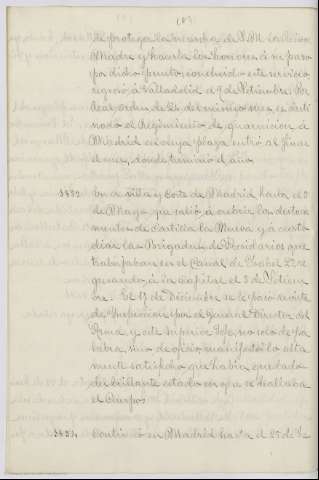 (8)
de proteger la marcha de S.M. la Reina
Madre y hacerla los honores á su paso
por dicho punto, concluido este servicio
regresó á Valladolid el 9 de Setiembre. Por
Real orden de 24 del mismo mes es desti
nado el Regimiento de guarnicion á
Madrid en cuya plaza entró al finar
el mes, donde terminó el año.
En la villa y Corte de Madrid hasta el 2
de Mayo que salió á cubrir los destaca
mentos de Castilla la Nueva y á custo
diar las Brigadas de Presidarios que
trabajaban en el Canal de Isabel 2ª re
gresando á la capital el 3 de Setiem
bre. El 17 de Diciembre se le pasó revista
de Inspeccion por el General Director del
Arma y este Superior Jefe, no solo de pa
labra, sino de oficio manifestó lo alta
mente satisfecho que habia quedado
del brillante estado en que se hallaba
el Cuerpo.
Continuó en Madrid hasta el 25 de